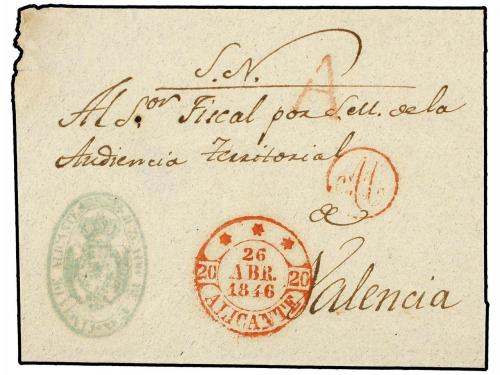 S. N.
A
Al S.or Fiscal por S.M. de la
Audiencia Territorial
de
Valencia
26
ABR.
1846
20 20
ALICANTE